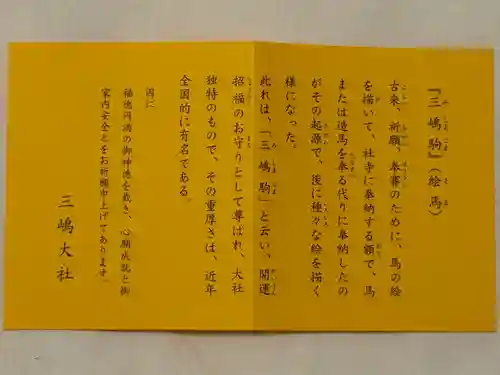 『三嶋駒』（絵馬）
古来、祈願、奉賽のために、馬の絵
を描いて、社寺に奉納する額で、馬
または造馬を奉る代りに奉納したの
がその起源で、後に種々な絵を描く
様になった。
此れは、「三嶋駒」と云い、開運
招福のお守りとして尊ばれ、大社
独特のもので、その重厚さは、近年
全国的に有名である。
因に
福徳円満の御神徳を戴き、心願成就と御
家内安全とをお祈願申上げてあります。
三嶋大社